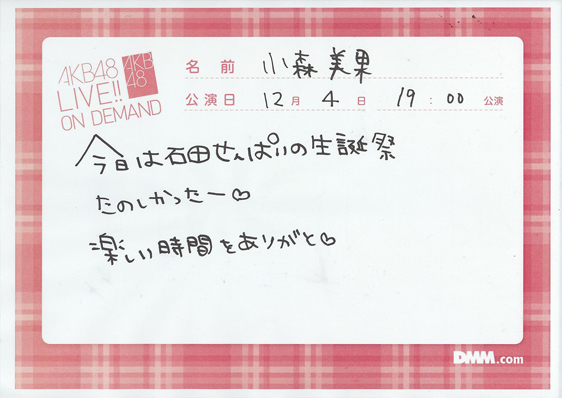 AKB48
LIVE!!
ON DEMAND
AKB
48
名前 小森美果
公演日 12月 4日 19:00 公演
今日は石田せんぱいの生誕祭
たのしかったー♡
楽しい時間をありがと♡
DMM.com